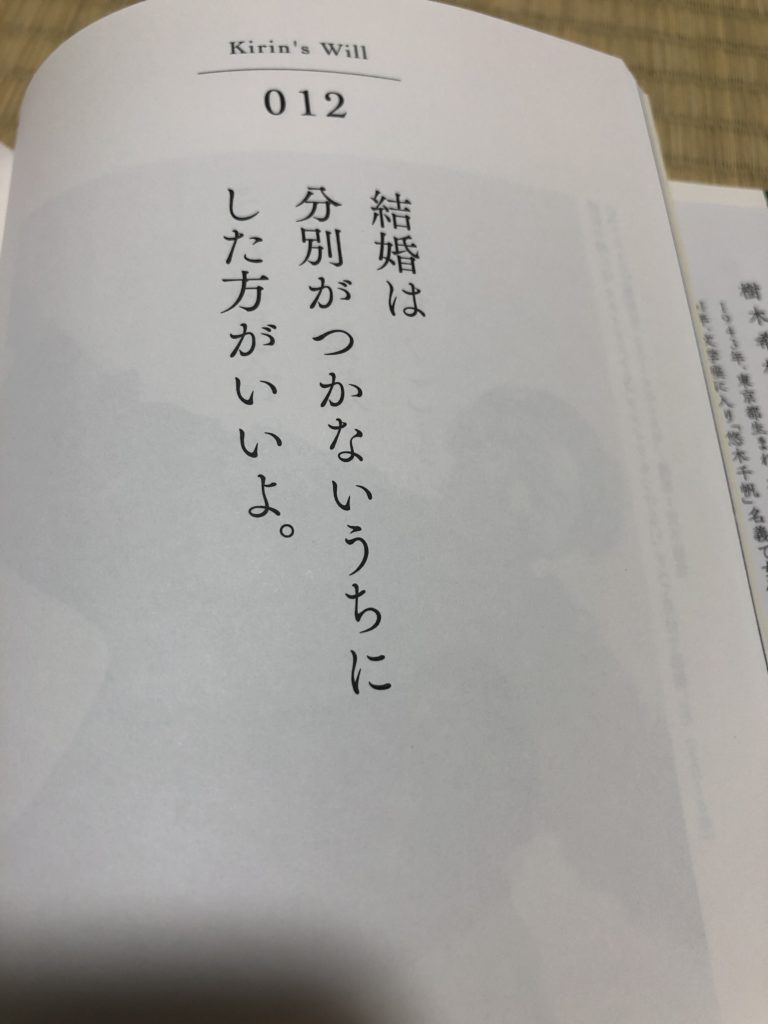 Kirin's Will
012
結婚は
分別がつかないうちに
した方がいいよ。
樹木希
1943年、東京都生まれ
に入り「悠木千帆」名義で